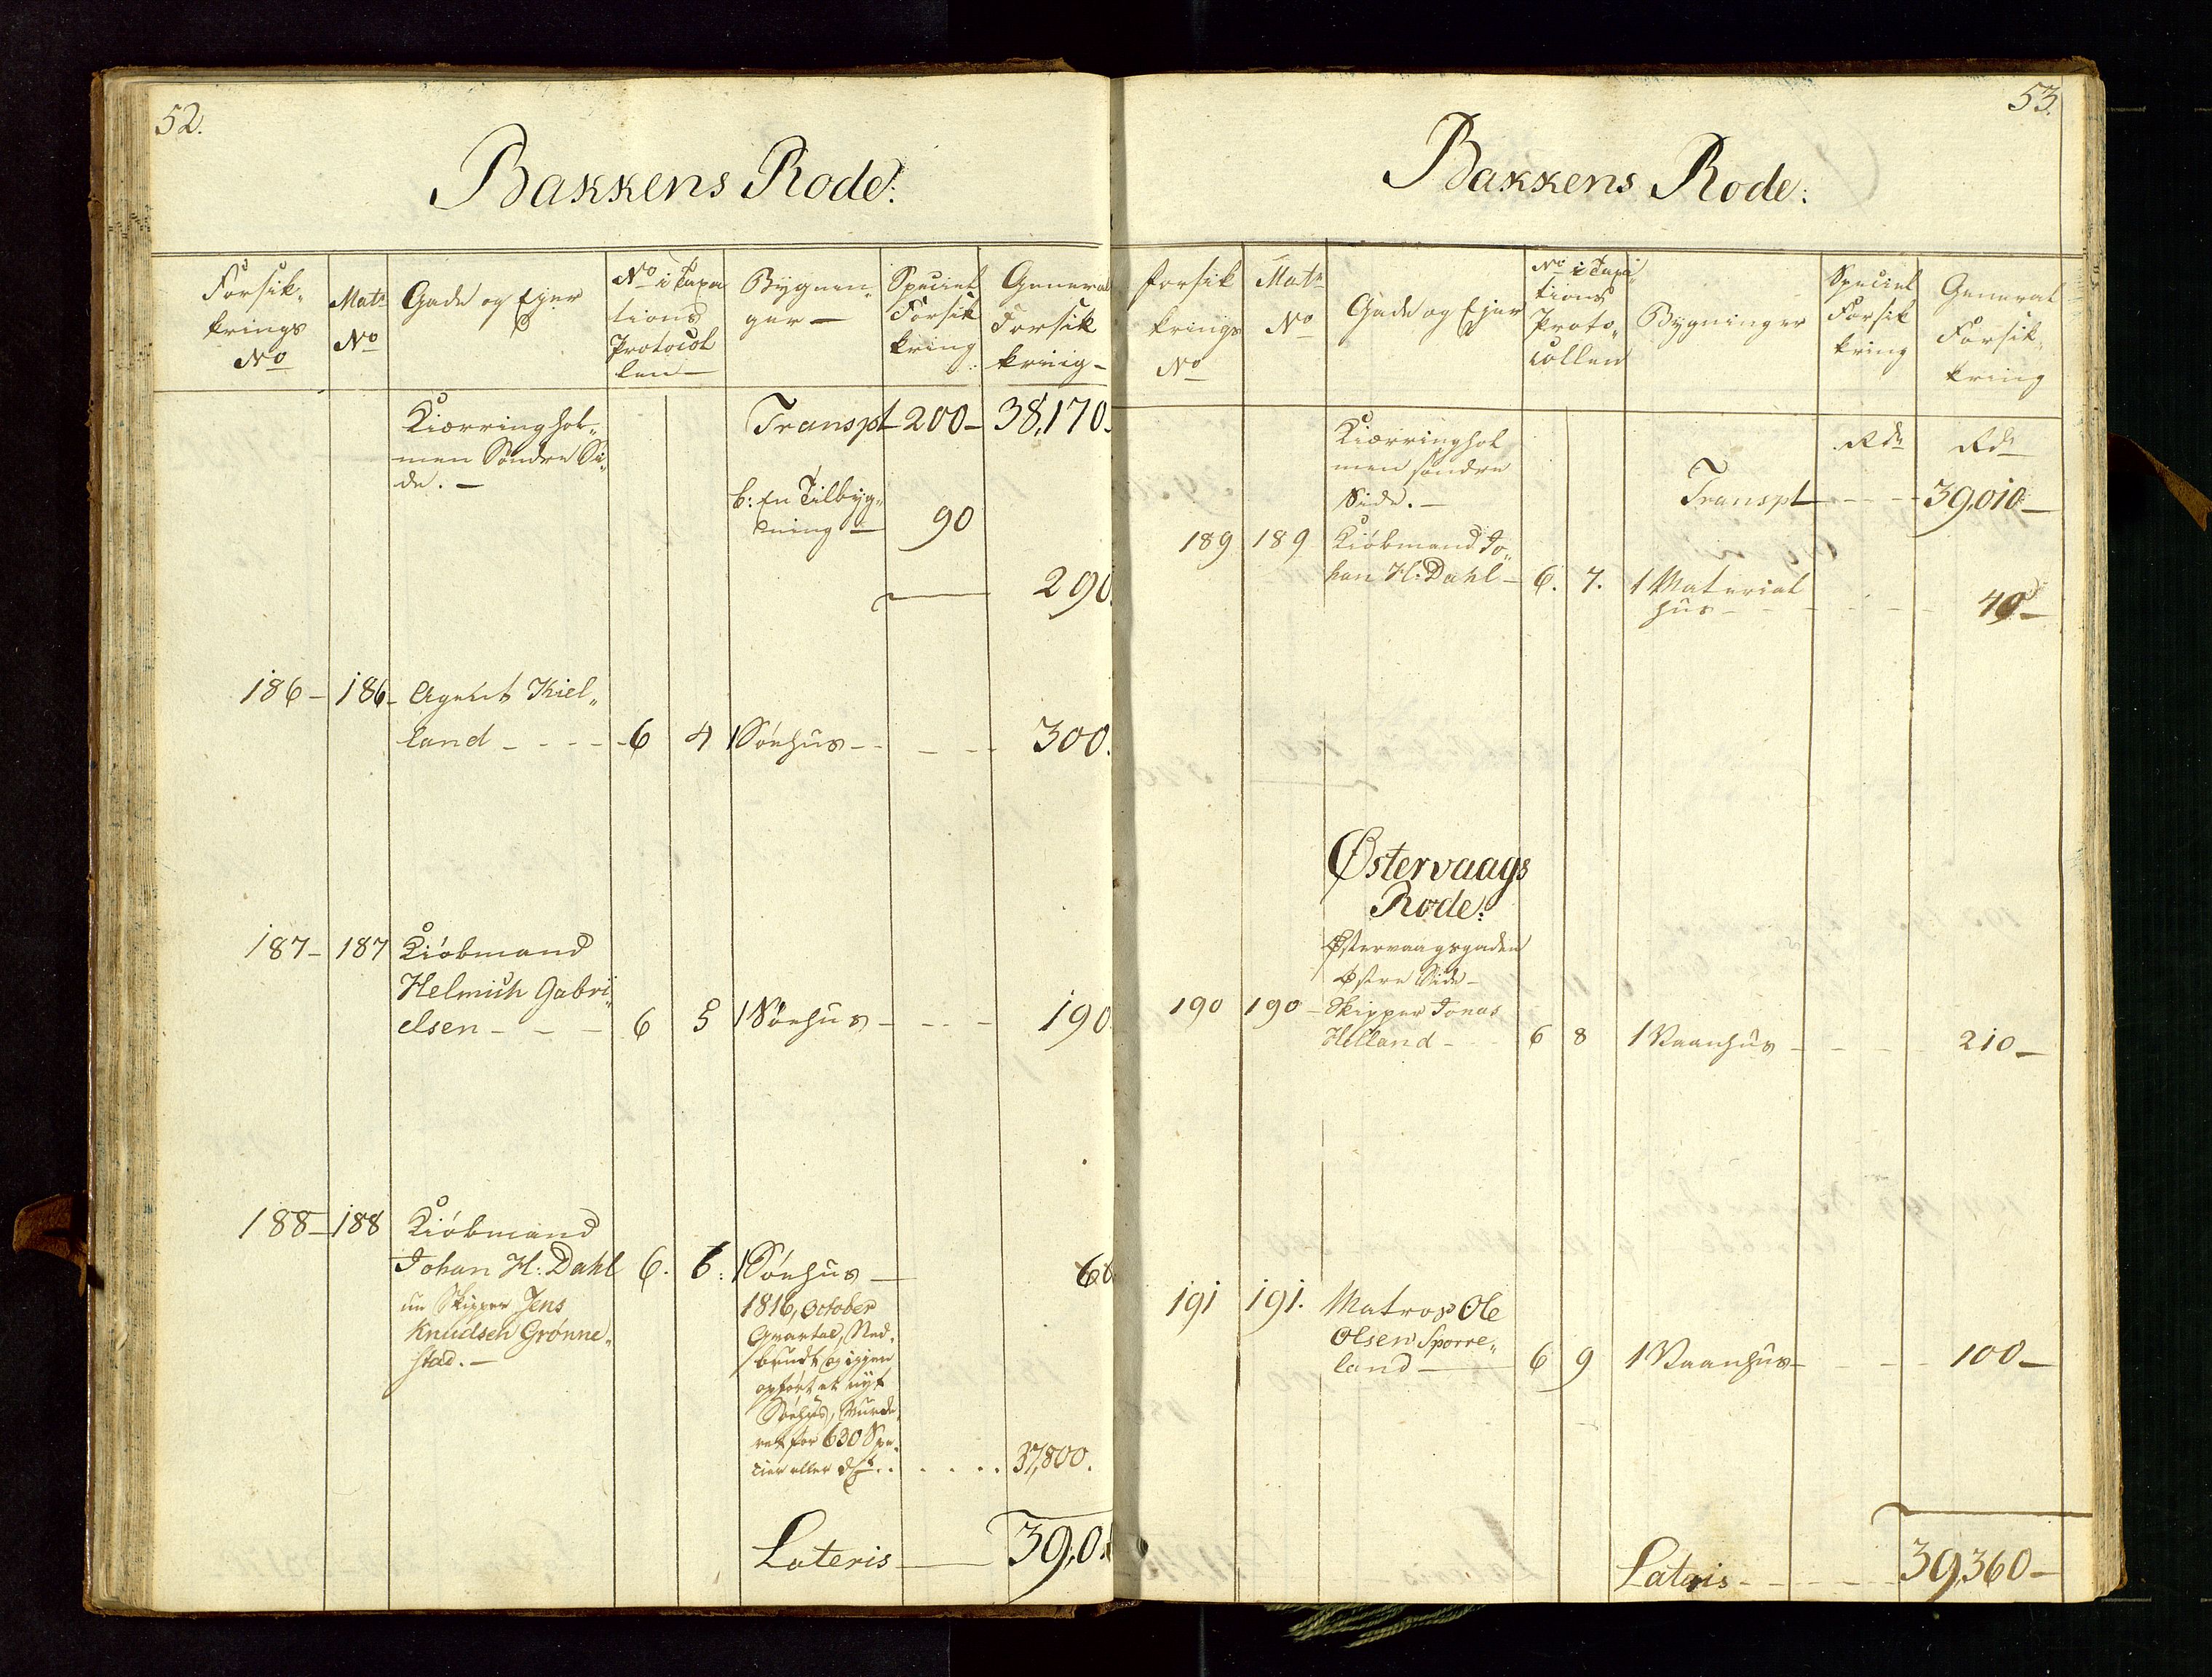 52.
Bakkens Rode:
Forsik-
krings
No
Matr
No
Gade og Ejer
No i Taxa
tions
Protocol
len
Bygnin-
ger
Speciel
Forsik
kring
General
Forsik
kring
Kiærringhol-
men Søndre Si-
de.
Transpt 200 - 38,170.
b: En Tilbyg-
ning 90
290.
186 - 186 - Agent Kiel-
land - - - - 6 4 1 Søehus - - - 300.
187 - 187 Kiöbmand
Helmich Gabri-
elsen - - - 6 5 1 Søehus - - - 190.
188 - 188 Kiöbmand
Johan H: Dahl 6. 6: 1 Söehus -
nu Skipper Jens
Knudsen Grönne-
stad. -
1816, October
Qvartal, Ned-
brudt og igjen
opført et nyt
Søehus, Vurde-
ret for 630 Spe-
cier eller . . . . . . 37,800.
Lateris 39,0
53.
Bakkens Rode:
Forsik
krings
No
Matr
No
Gade og Ejer
No i Taxa
tions
Proto-
collen
Bygninger
Speciel
Forsik
kring
General
Forsik-
kring
Kiærringhol
men søndre
Side. -
Rdr Rdr
Transpt - - - 39,010 -
189 189 Kiöbmand Jo-
han H. Dahl - 6. 7. 1 Material
hus - - - - 40 -
Østervaags
Rode:
Østervaagsgaden
Østre Side -
190 190 - Skipper Jonas
Helland - 6 8 1 Vaanhus - - - 210 -
191 191. Matros Ole
Olsen Sporre-
land 6 9 1 Vaanhus - - - 100 -
Lateris - - - - 39,360 -